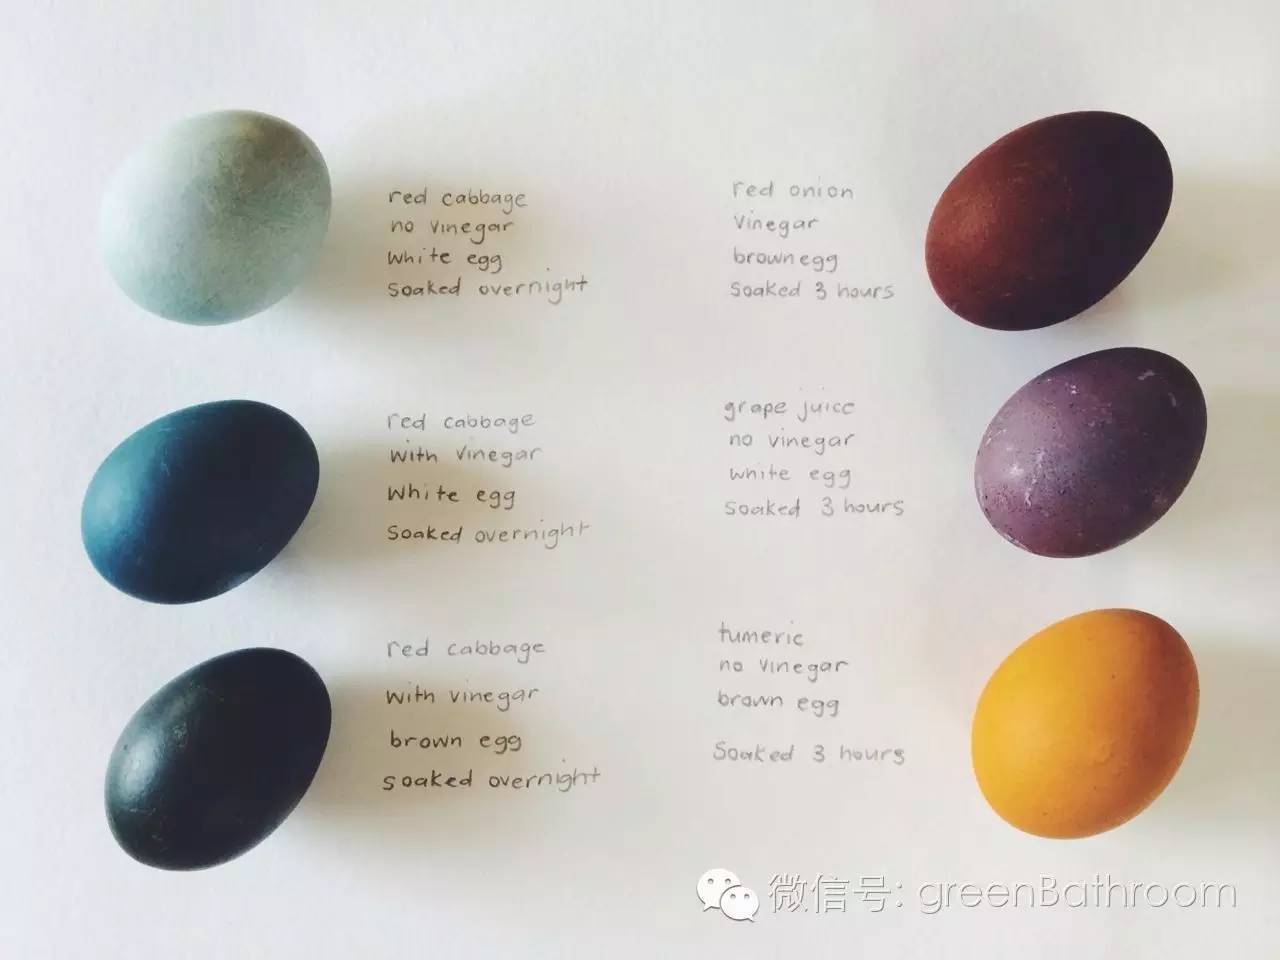 red cabbage
no vinegar
white egg
soaked overnight
red cabbage
with vinegar
white egg
soaked overnight
red cabbage
with vinegar
brown egg
soaked overnight
red onion
vinegar
brown egg
soaked 3 hours
grape juice
no vinegar
white egg
soaked 3 hours
tumeric
no vinegar
brown egg
soaked 3 hours
微信号: greenBathroom